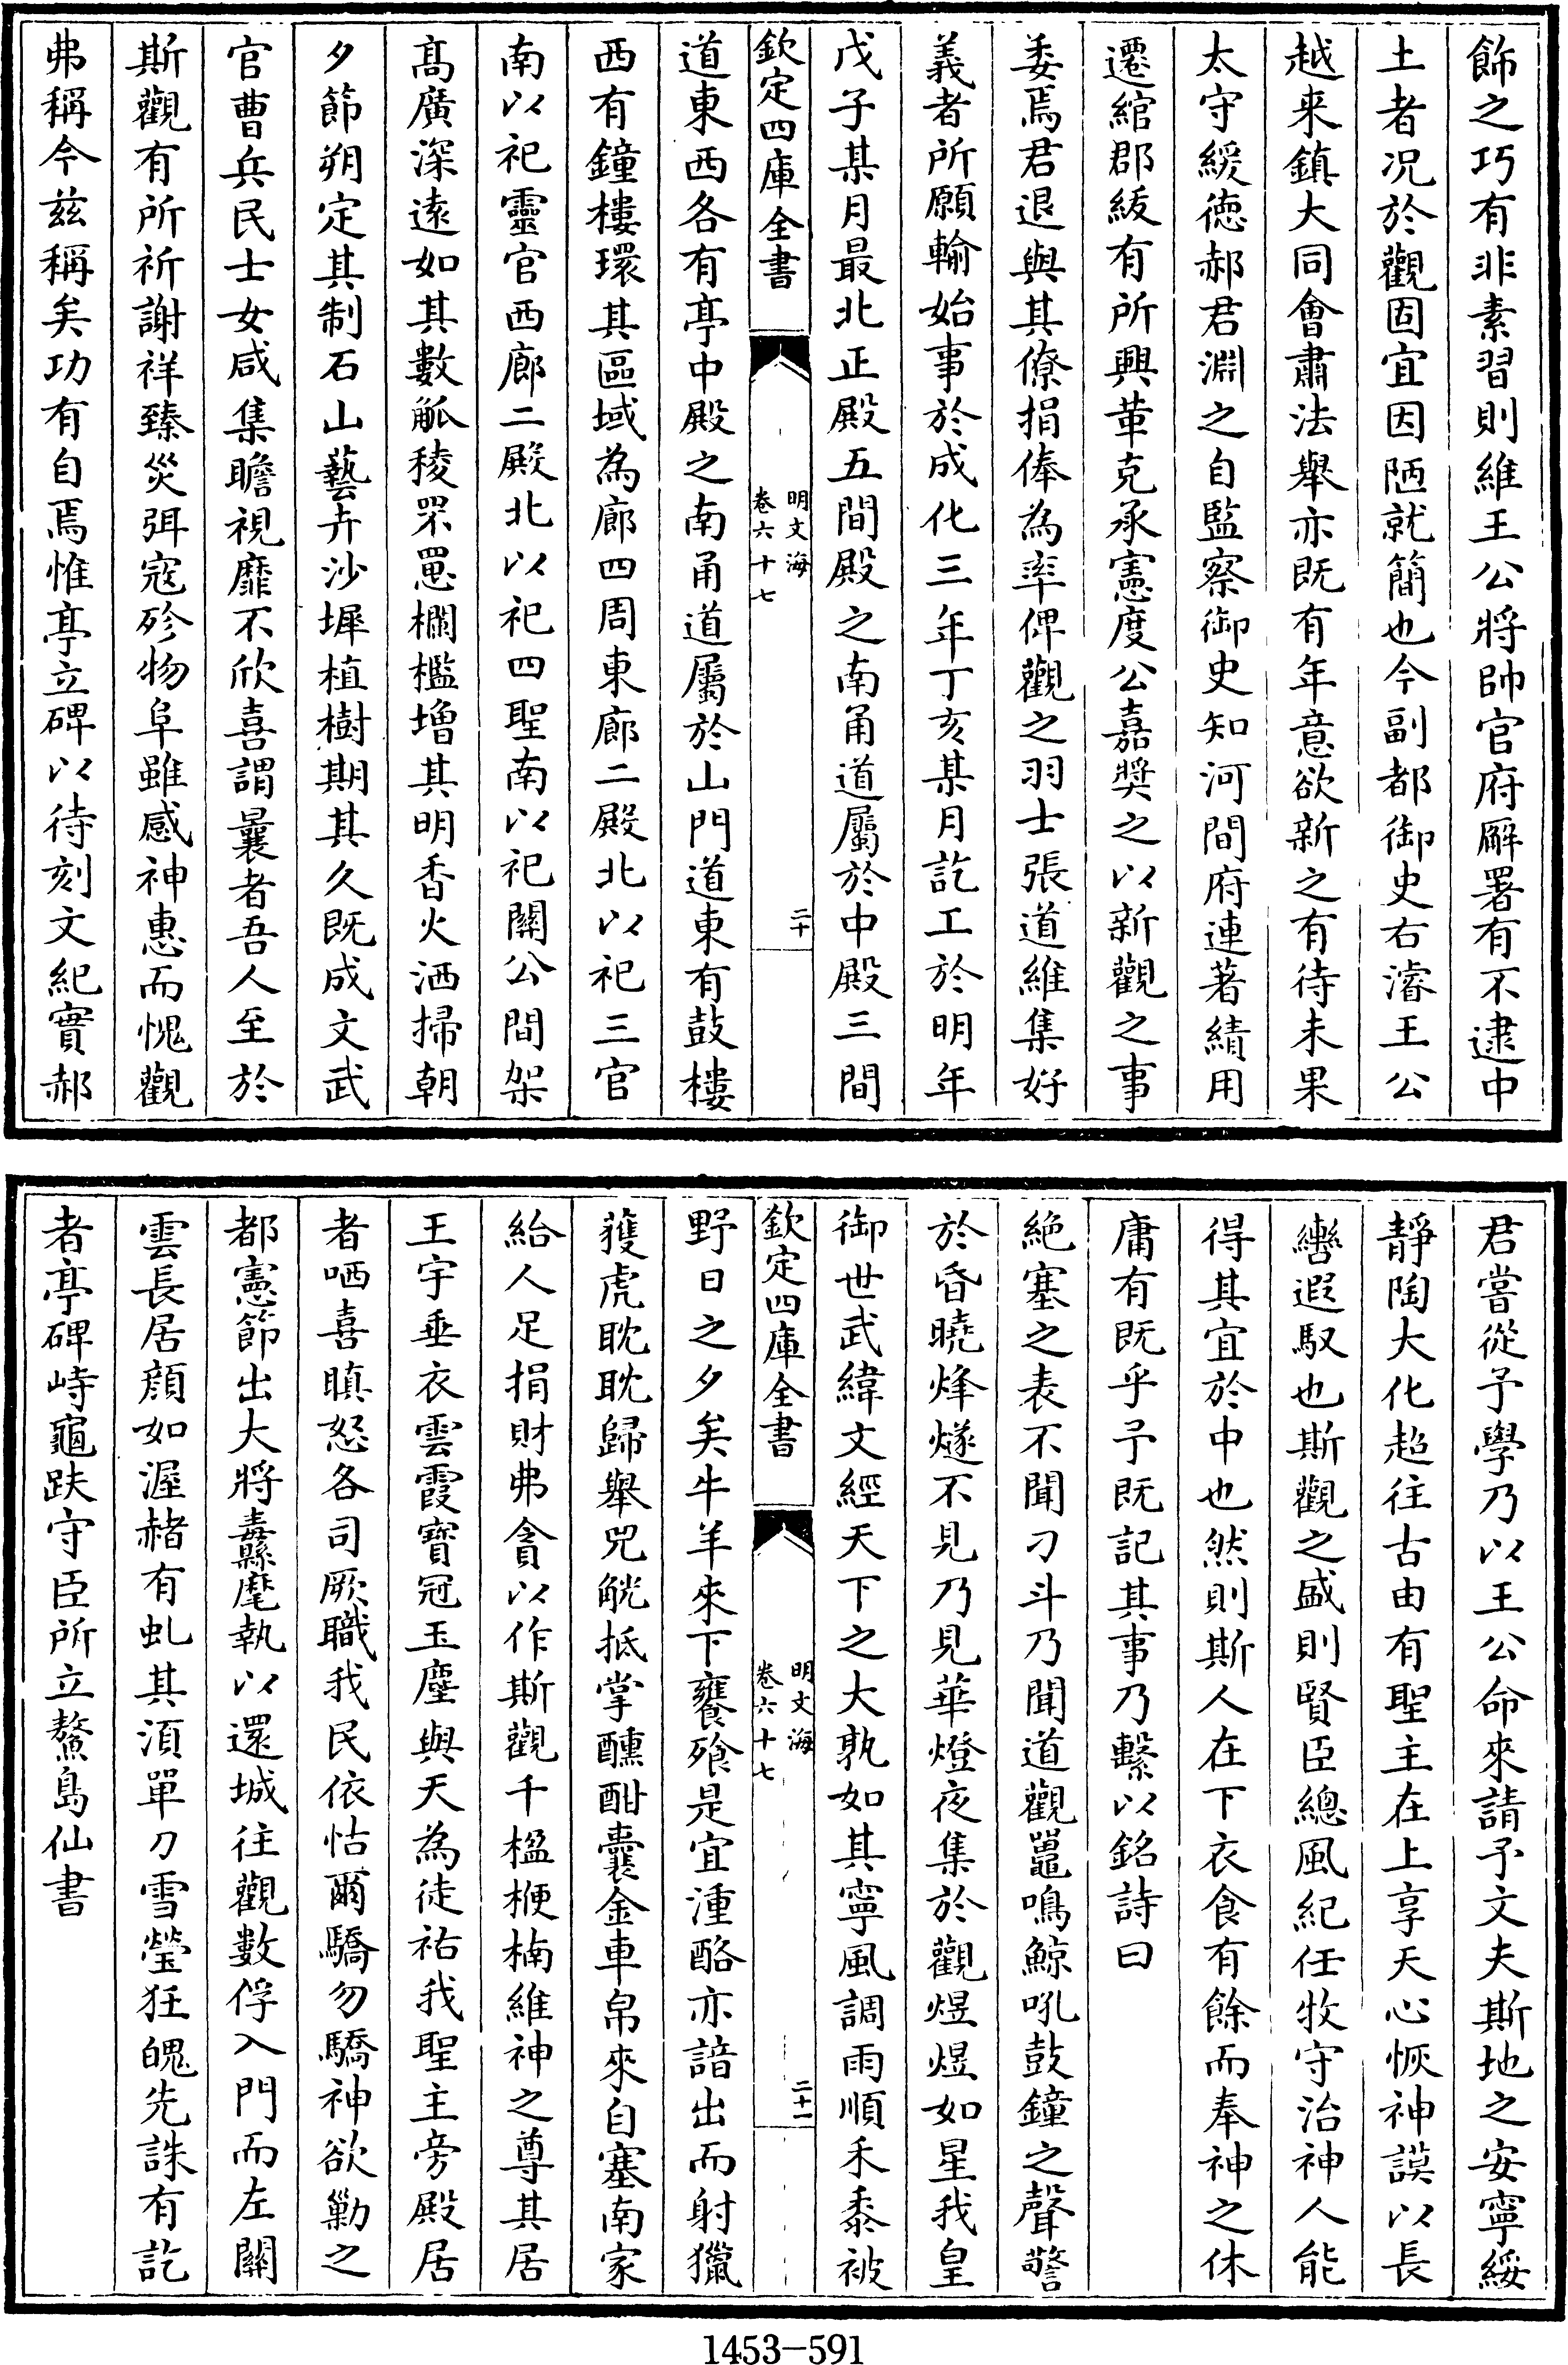 飾之巧有非素習則維王公將帥官府廨署有不逮中
土者况於觀固宜因陋就簡也今副都御史右濬王公
越来鎮大同會肅法舉亦既有年意欲新之有待未果
太守緩德郝君淵之自監察御史知河間府連著績用
遷綰郡紱有所興革克承憲度公嘉奬之以新觀之事
委焉君退與其僚捐俸為率俾觀之羽士張道維集好
義者所願輸始事於成化三年丁亥某月訖工於明年
戊子某月最北正殿五間殿之南甬道屬於中殿三間
欽定四庫全書
明文海
卷六十七
二十
道東西各有亭中殿之南甬道屬於山門道東有鼓樓
西有鐘樓環其區域為廊四周東廊二殿北以祀三官
南以祀靈官西廊二殿北以祀四聖南以祀關公間架
髙廣深逺如其數觚稜罘罳欄檻増其明香火洒掃朝
夕節朔定其制石山藝卉沙墀植樹期其久既成文武
官曹兵民士女咸集瞻視靡不欣喜謂曩者吾人至於
斯觀有所祈謝祥臻災弭宼殄物阜雖感神惠而愧觀
弗稱今兹稱矣功有自焉惟亭立碑以待刻文紀實郝
君嘗從予學乃以王公命來請予文夫斯地之安寧綏
靜陶大化超往古由有聖主在上享天心恢神謨以長
轡遐馭也斯觀之盛則賢臣總風紀任牧守治神人能
得其宜於中也然則斯人在下衣食有餘而奉神之休
庸有既乎予既記其事乃繫以銘詩曰
絶塞之表不聞刁斗乃聞道觀鼉鳴鯨吼鼓鐘之聲警
於昏曉烽燧不見乃見華燈夜集於觀煜煜如星我皇
御世武緯文經天下之大孰如其寧風調雨順禾黍被
欽定四庫全書
明文海
卷六十七
二十一
野日之夕矣牛羊來下饔飱是宜湩酪亦諳出而射獵
獲虎耽耽歸舉兕觥抵掌醺酣囊金車帛來自塞南家
給人足捐財弗貪以作斯觀千楹楩楠維神之尊其居
王宇垂衣雲霞寳冠玉麈與天為徒祐我聖主旁殿居
者哂喜瞋怒各司厥職我民依怙爾驕勿驕神欲勦之
都憲節出大將纛麾執以還城往觀數俘入門而左關
雲長居顔如渥赭有虬其湏單刀雪瑩狂魄先誅有訖
者亭碑峙龜趺守臣所立鰲島仙書
1453-591